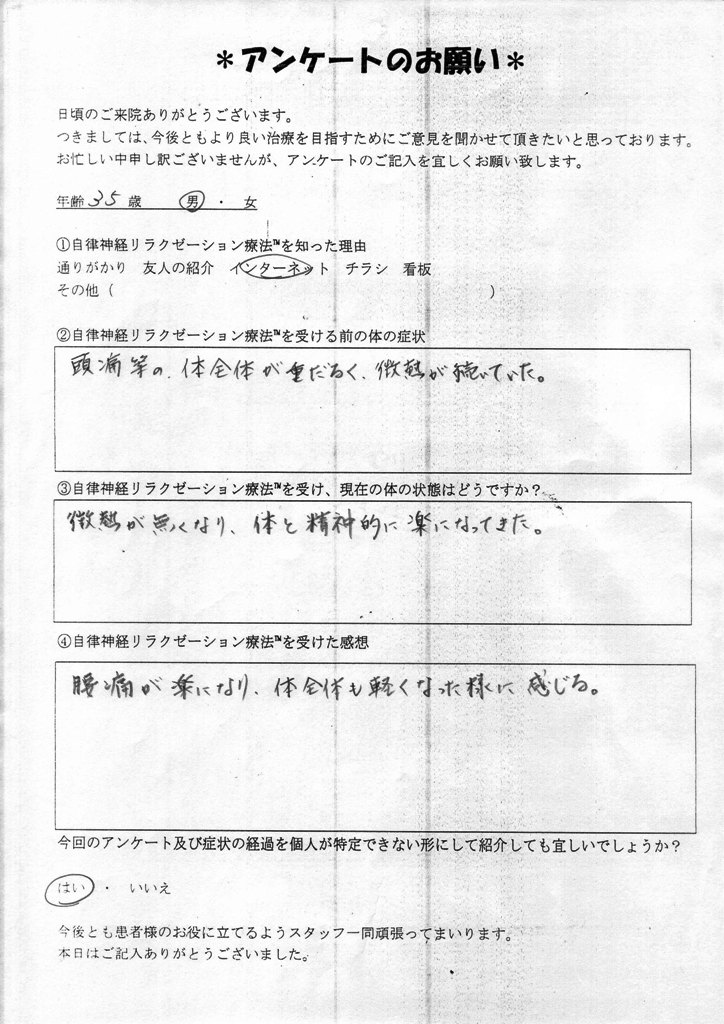 ＊アンケートのお願い＊
日頃のご来院ありがとうございます。
つきましては、今後ともより良い治療を目指すためにご意見を聞かせて頂きたいと思っております。
お忙しい中申し訳ございませんが、アンケートのご記入を宜しくお願い致します。
年齢 35 歳　男 ・ 女
①自律神経リラクゼーション療法™を知った理由
通りがかり　友人の紹介　インターネット　チラシ　看板
その他（　　　）
②自律神経リラクゼーション療法™を受ける前の体の症状
頭痛等の、体全体が重だるく、微熱が続いていた。
③自律神経リラクゼーション療法™を受け、現在の体の状態はどうですか？
微熱が無くなり、体と精神的に楽になってきた。
④自律神経リラクゼーション療法™を受けた感想
腰痛が楽になり、体全体も軽くなった様に感じる。
今回のアンケート及び症状の経過を個人が特定できない形にして紹介しても宜しいでしょうか？
はい ・ いいえ
今後とも患者様のお役に立てるようスタッフ一同頑張ってまいります。
本日はご記入ありがとうございました。